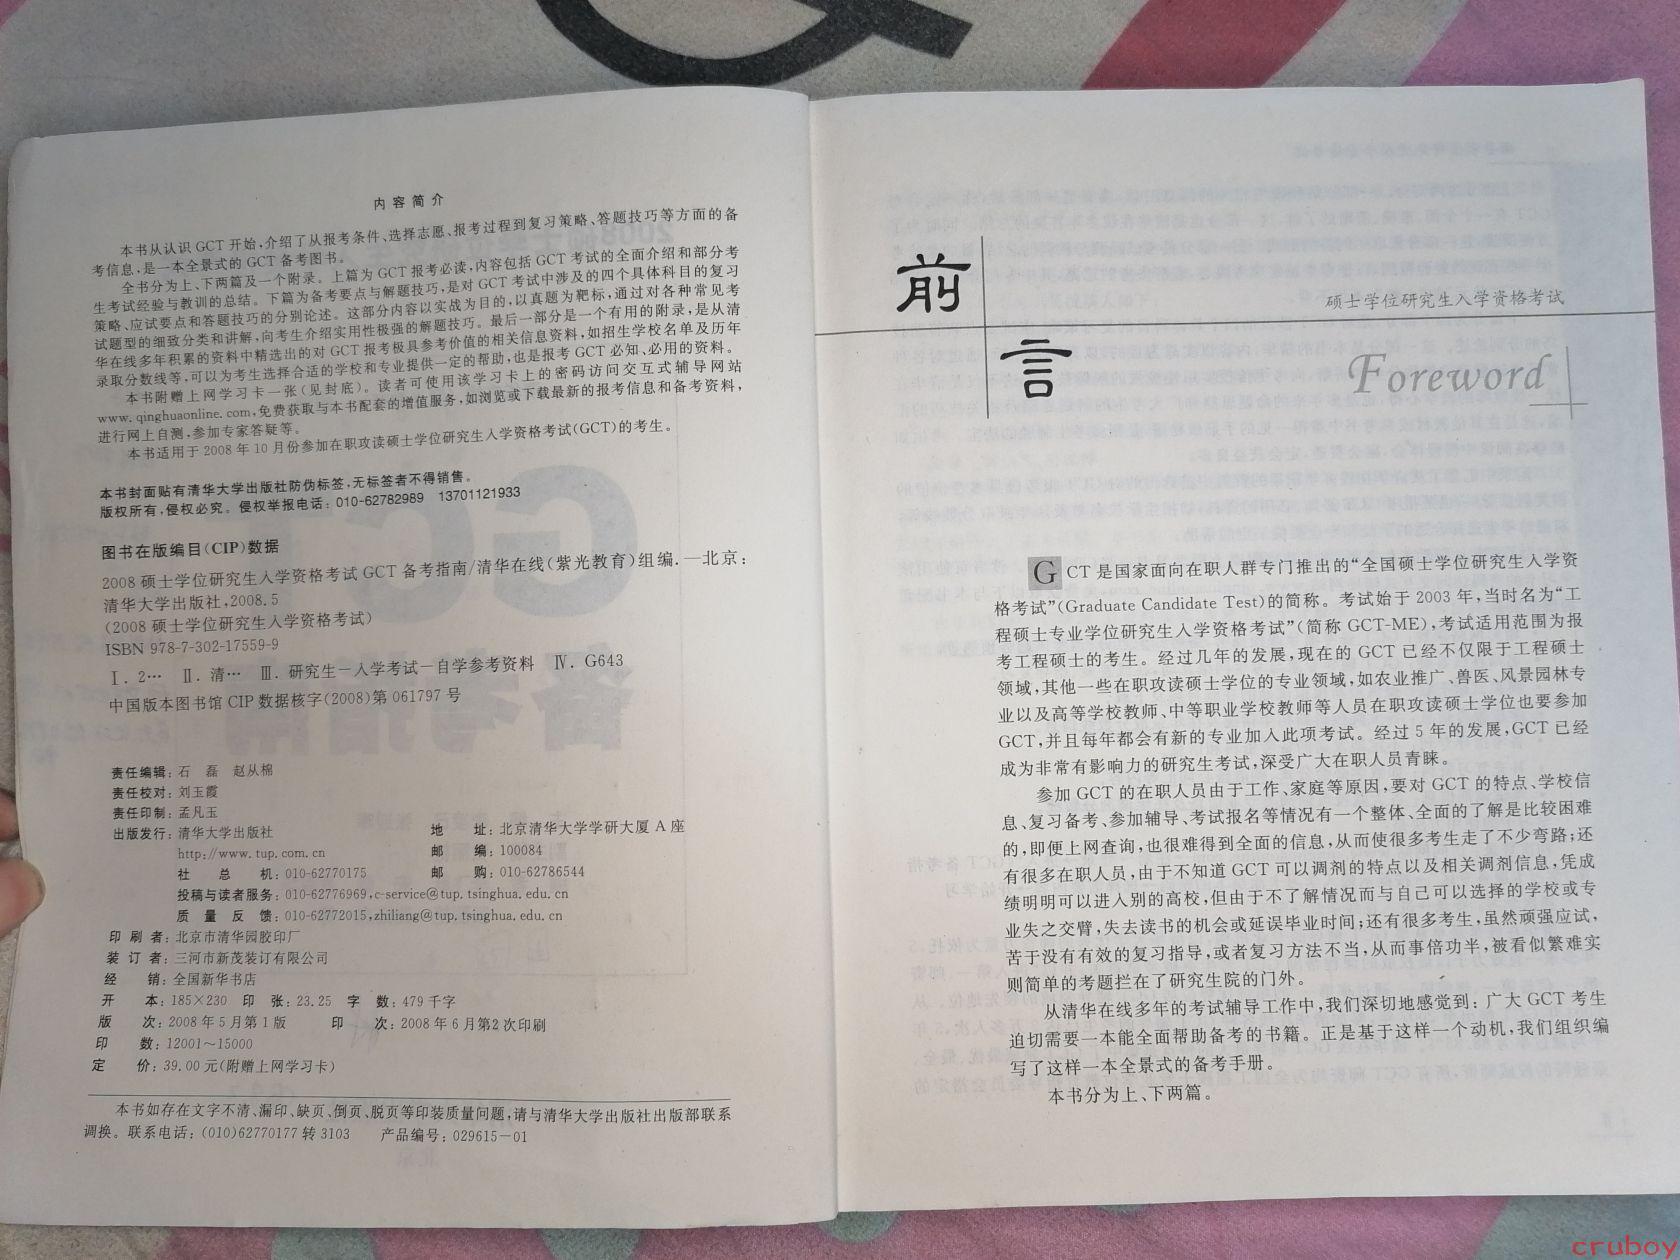 内容简介
本书从认识 GCT 开始,介绍了从报考条件、选择志愿、报考过程到复习策略、答题技巧等方面的备
考信息,是一本全景式的 GCT 备考图书。
全书分为上、下两篇及一个附录。上篇为 GCT 报考必读,内容包括 GCT 考试的全面介绍和部分考
生考试经验与教训的总结。下篇为备考要点与解题技巧,是对 GCT 考试中涉及的四个具体科目的复习
策略、应试要点和答题技巧的分别论述。这部分内容以实战为目的,以真题为靶标,通过对各种常见考
试题型的细致分类和讲解,向考生介绍实用性极强的解题技巧。最后一部分是一个有用的附录,是从清
华在线多年积累的资料中精选出的对 GCT 报考极具参考价值的相关信息资料,如招生学校名单及历年
录取分数线等,可以为考生选择合适的学校和专业提供一定的帮助,也是报考 GCT 必知、必用的资料。
本书附赠上网学习卡一张(见封底)。读者可使用该学习卡上的密码访问交互式辅导网站
www.qinghuaonline.com,免费获取与本书配套的增值服务,如浏览或下载最新的报考信息和备考资料,
进行网上自测,参加专家答疑等。
本书适用于 2008 年 10 月份参加在职攻读硕士学位研究生入学资格考试(GCT)的考生。
本书封面贴有清华大学出版社防伪标签,无标签者不得销售。
版权所有,侵权必究。侵权举报电话:010-62782989 13701121933
图书在版编目(CIP)数据
2008 硕士学位研究生入学资格考试 GCT 备考指南/清华在线(紫光教育)组编.—北京:
清华大学出版社,2008.5
(2008 硕士学位研究生入学资格考试)
ISBN 978-7-302-17559-9
Ⅰ. 2… Ⅱ. 清… Ⅲ. 研究生－入学考试－自学参考资料 Ⅳ. G643
中国版本图书馆 CIP 数据核字(2008)第 061797 号
责任编辑:石 磊 赵从棉
责任校对:刘玉霞
责任印制:孟凡玉
出版发行:清华大学出版社 地 址:北京清华大学学研大厦 A 座
http://www.tup.com.cn 邮 编:100084
社 总 机:010-62770175 邮 购:010-62786544
投稿与读者服务:010-62776969,c-service@tup.tsinghua.edu.cn
质 量 反 馈:010-62772015,zhiliang@tup.tsinghua.edu.cn
印 刷 者:北京市清华园胶印厂
装 订 者:三河市新茂装订有限公司
经 销:全国新华书店
开 本:185×230 印 张:23.25 字 数:479 千字
版 次:2008 年 5 月第 1 版 印 次:2008 年 6 月第 2 次印刷
印 数:12001～15000
定 价:39.00 元(附赠上网学习卡)
本书如存在文字不清、漏印、缺页、倒页、脱页等印装质量问题,请与清华大学出版社出版部联系
调换。联系电话:(010)62770177 转 3103 产品编号:029615－01
前言
硕士学位研究生入学资格考试
Foreword
GCT 是国家面向在职人群专门推出的“全国硕士学位研究生入学资
格考试”(Graduate Candidate Test)的简称。考试始于 2003 年,当时名为“工
程硕士专业学位研究生入学资格考试”(简称 GCT-ME),考试适用范围为报
考工程硕士的考生。经过几年的发展,现在的 GCT 已经不仅限于工程硕士
领域,其他一些在职攻读硕士学位的专业领域,如农业推广、兽医、风景园林专
业以及高等学校教师、中等职业学校教师等人员在职攻读硕士学位也要参加
GCT,并且每年都会有新的专业加入此项考试。经过 5 年的发展,GCT 已经
成为非常有影响力的研究生考试,深受广大在职人员青睐。
参加 GCT 的在职人员由于工作、家庭等原因,要对 GCT 的特点、学校信
息、复习备考、参加辅导、考试报名等情况有一个整体、全面的了解是比较困难
的,即便上网查询,也很难得到全面的信息,从而使很多考生走了不少弯路;还
有很多在职人员,由于不知道 GCT 可以调剂的特点以及相关调剂信息,凭成
绩明明可以进入别的高校,但由于不了解情况而与自己可以选择的学校或专
业失之交臂,失去读书的机会或延误毕业时间;还有很多考生,虽然顽强应试,
苦于没有有效的复习指导,或者复习方法不当,从而事倍功半,被看似繁难实
则简单的考题拦在了研究生院的门外。
从清华在线多年的考试辅导工作中,我们深切地感觉到:广大 GCT 考生
迫切需要一本能全面帮助备考的书籍。正是基于这样一个动机,我们组织编
写了这样一本全景式的备考手册。
本书分为上、下两篇。
cruboy